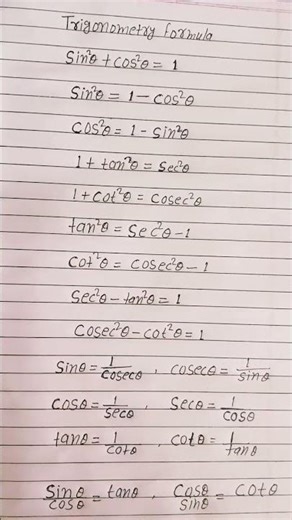 Trigonometry formula
Sin²θ + cos²θ = 1
Sin²θ = 1 - cos²θ
cos²θ = 1 - sin²θ
1 + tan²θ = Sec²θ
1 + cot²θ = cosec²θ
tan²θ = sec²θ - 1
cot²θ = cosec²θ - 1
Sec²θ - tan²θ = 1
Cosec²θ - cot²θ = 1
Sinθ = 1/cosecθ , cosecθ = 1/sinθ
Cosθ = 1/secθ , Secθ = 1/cosθ
tanθ = 1/cotθ , cotθ = 1/tanθ
Sinθ/cosθ = tanθ , Cosθ/sinθ = cotθ